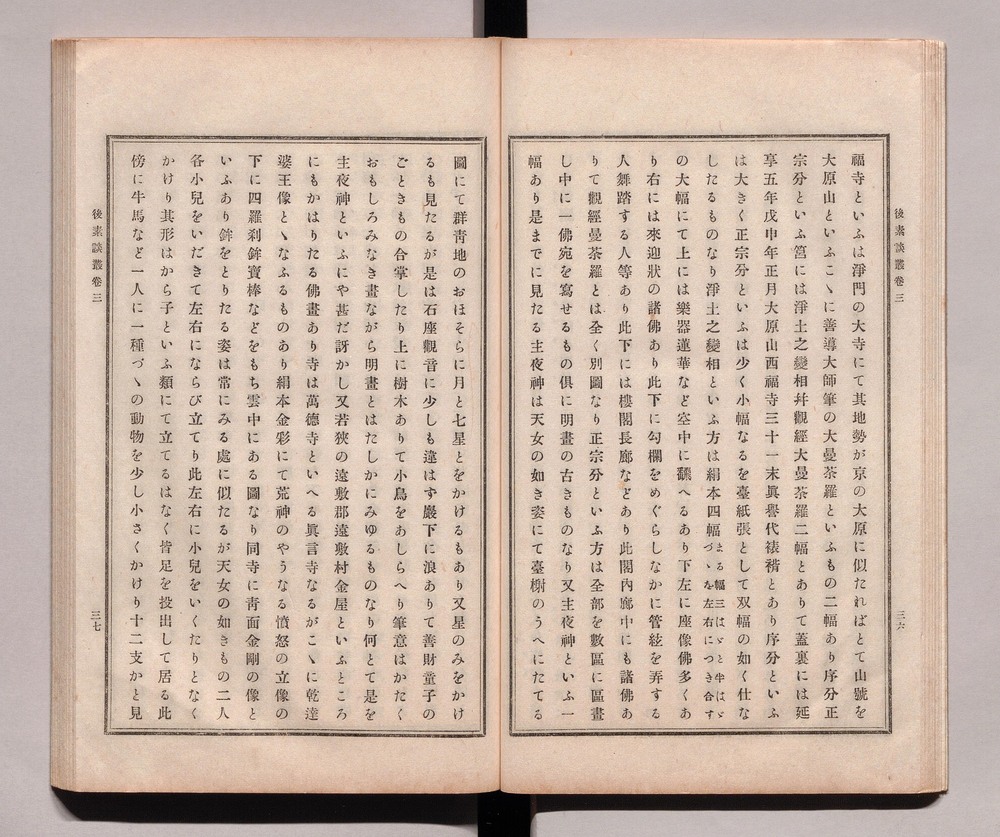 後素談叢卷三
三六
福寺といふは淨門の大寺にて其地勢が京の大原に似たればとて山號を
大原山といふこゝに善導大師筆の大曼荼羅といふもの二幅あり序分正
宗分といふ筥には淨土之變相幷觀經大曼荼羅二幅とありて蓋裏には延
享五年戊申年正月大原山西福寺三十一末眞譽代裱褙とあり序分といふ
は大きく正宗分といふは少く小幅なるを臺紙張として双幅の如く仕な
したるものなり淨土之變相といふ方は絹本四幅まる幅三はゞと半はゞづゝを左右につき合す
の大幅にて上には樂器蓮華など空中に飜へるあり下左に座像佛多くあ
り右には來迎狀の諸佛あり此下に勾欄をめぐらしなかに管絃を弄する
人舞踏する人等あり此下には樓閣長廊などあり此閣內廊中にも諸佛あ
りて觀經曼荼羅とは全く別圖なり正宗分といふ方は全部を數區に區畫
し中に一佛宛を寫せるもの俱に明畫の古きものなり又主夜神といふ一
幅あり是までに見たる主夜神は天女の如き姿にて臺榭のうへにたてる
圖にて群靑地のおほそらに月と七星とをかけるもあり又星のみをかけ
るも見たるが是は石座觀音に少しも違はず巖下に浪ありて善財童子の
ごときもの合掌したり上に樹木ありて小鳥をあしらへり筆意はかたく
おもしろみなき畫ながら明畫とはたしかにみゆるものなり何とて是を
主夜神といふにや甚だ訝かし又若狹の遠敷郡遠敷村金屋といふところ
にもかはりたる佛畫あり寺は萬德寺といへる眞言寺なるがこゝに乾達
婆王像とゝなふるものあり絹本金彩にて荒神のやうなる憤怒の立像の
下に四羅刹鉾寶棒などをもち雲中にある圖なり同寺に靑面金剛の像と
いふあり鉾をとりたる姿は常にみる處に似たるが天女の如きもの二人
各小兒をいだきて左右にならび立てり此左右に小兒をいくたりとなく
かけり其形はから子といふ類にて立てるはなく皆足を投出して居る此
傍に牛馬など一人に一種づゝの動物を少し小さくかけり十二支かと見
後素談叢卷三
三七